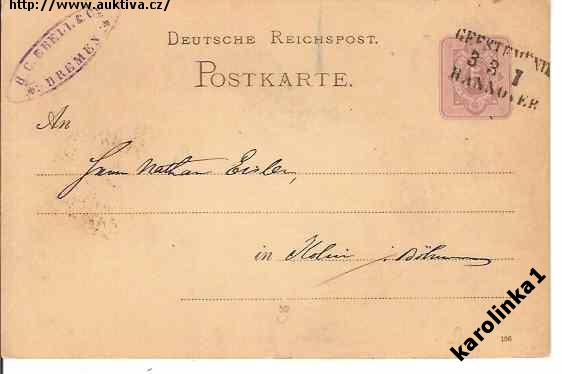 http://www.auktiva.cz/
H.C. EBELL & Co
BREMEN.
DEUTSCHE REICHSPOST.
POSTKARTE.
GEESTEMÜNDE
3 3 I
HANNOVER
An
Herrn Nathan Eisler,
in Kolin i. Böhmen
karolinka1